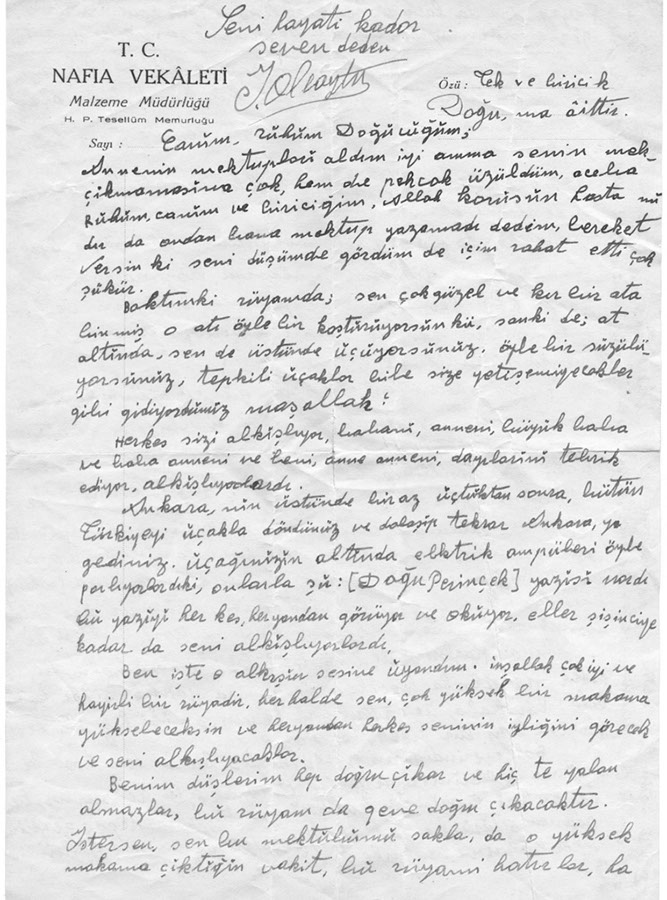 Seni hayatı kadar
seven deden
T. C.
NAFIA VEKÂLETİ
Malzeme Müdürlüğü
H. P. Tesellüm Memurluğu
Özü : Tek ve biricik
Doğu, ma âittir.
Sayı :
Canım, rûhum Doğûcûğûm;
Annenin mektupları aldım iyi amma senin mek
çıkmamasına çok, hem de pekçok üzüldüm, aceba
Rûhûm, canım ve biriciğim, Allah korusûn hasta mı
dır da ondan bana mektup yazamadı dedim, bereket
versin ki seni düşümde gördüm de içim rahat etti çok
şükür.
Baktımki rüyamda; sen çok güzel ve kır bir ata
binmiş o atı öyle bir koştûrûyorsûn kü, sanki de; at
altında, sen de üstünde üçüyorsûnûz. öyle bir süzülü
yorsûnûz, tepkili üçaklar bile size yetişemiyecekler
gibi gidiyordûnûz maşallah!
Herkes sizi alkışlıyor, babanı, anneni, büyük baba
ve baba anneni ve beni, anne anneni, dayılarını tebrik
ediyor, alkışlıyorlardı.
Ankara, nın üstünde biraz üçtûktan sonra, bütün
Türkiyeyi üçakla döndünüz ve dolaşıp tekrar Ankara, ya
geldiniz. üçağınızın altında elktrik ampülleri öyle
parlıyorlardıki, onlarla şû: [Doğu Perinçek] yazısı vardı
bû yazıyı her kes, her yandan görüyor ve okûyor. eller şişinciye
kadar da seni alkışlıyorlardı,
Ben işte o alkışın sesine üyandım. inşallah çok iyi ve
hayırlı bir rüyadır, her halde sen, çok yüksek bir makama
yükseleceksin ve heryandan herkes seninin iyliğini görecek
ve seni alkışlıyacaklar.
Benim düşlerim hep doğru çıkar ve hiç te yalan
olmazlar, bû rüyam da gene doğru çıkacaktır.
İstersen, sen bu mektûbûmû sakla, da o yüksek
makama çıktığın vakit, bû rüyamı hatırlar, ha